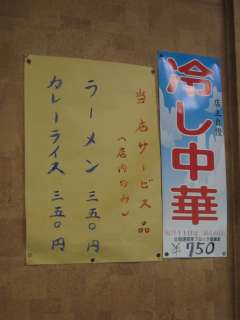 冷し中華
店主自慢
750
当店サービス品
(店内のみ)
ラーメン 三五〇円
カレーライス 三五〇円